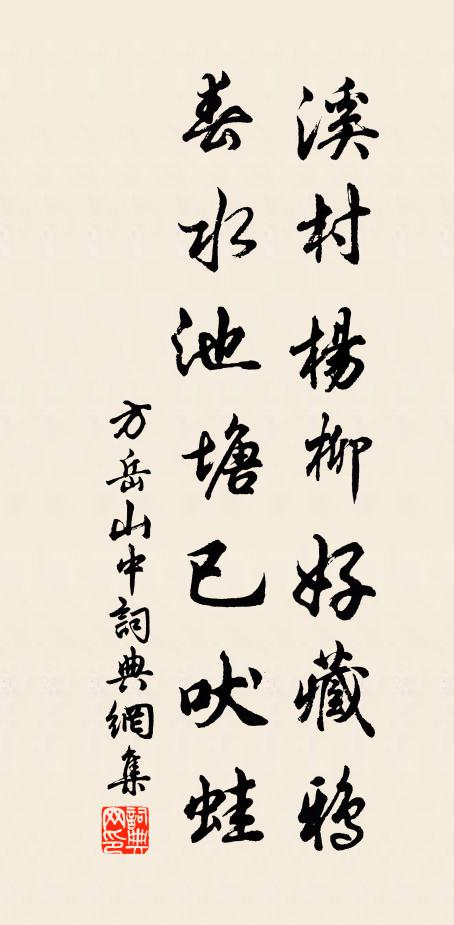 溪村楊柳好藏鴉
春水池塘已吠蛙
方岳山中詞典網集
詞典网印